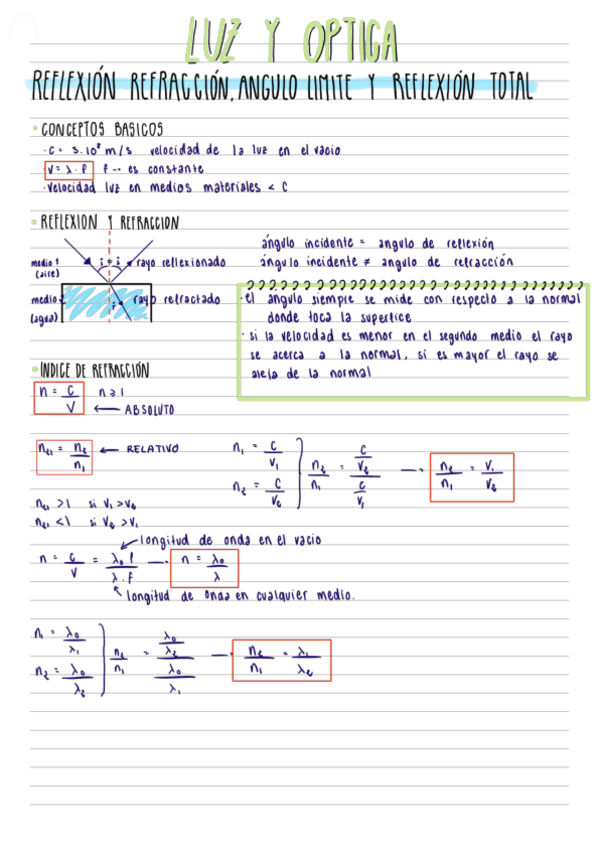 LUZ Y OPTICA
REFLEXIÓN REFRACCIÓN, ANGULO LIMITE Y REFLEXIÓN TOTAL
• CONCEPTOS BASICOS
· C = 3.10⁸ m/s velocidad de la luz en el vacio
· V = λ . f f --> es constante
· velocidad luz en medios materiales < C
• REFLEXION Y REFRACCION
medio 1 (aire)
i = i rayo reflexionado
medio 2 (agua)
r rayo refractado
ángulo incidente = angulo de reflexión
ángulo incidente ≠ angulo de refracción
· el angulo siempre se mide con respecto a la normal
donde toca la superfice
· si la velocidad es menor en el segundo medio el rayo
se acerca a la normal, si es mayor el rayo se
aleja de la normal
• ÍNDICE DE REFRACCIÓN
n = C / V n ≥ 1
← ABSOLUTO
n₂₁ = n₂ / n₁ ← RELATIVO
n₁ = C / V₁
n₂ = C / V₂
n₂ / n₁ = (C / V₂) / (C / V₁) → n₂ / n₁ = V₁ / V₂
n₂₁ > 1 si V₁ > V₂
n₂₁ < 1 si V₂ > V₁
longitud de onda en el vacio
n = C / V = λ₀ f / λ . f → n = λ₀ / λ
longitud de onda en cualquier medio.
n₁ = λ₀ / λ₁
n₂ = λ₀ / λ₂
n₂ / n₁ = (λ₀ / λ₂) / (λ₀ / λ₁) → n₂ / n₁ = λ₁ / λ₂